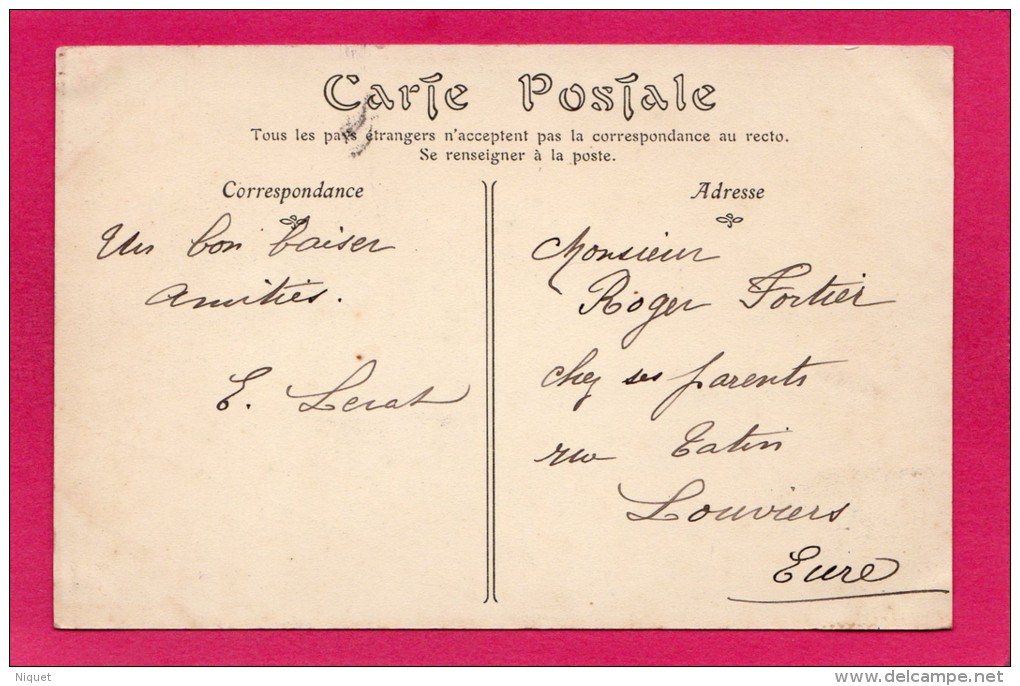 Carte Postale
Tous les pays étrangers n'acceptent pas la correspondance au recto.
Se renseigner à la poste.
Correspondance
Un bon baiser
Amitiés.
E. Lerat
Adresse
Monsieur
Roger Fortier
chez ses parents
rue Tatin
Louviers
Eure
Niquet
delcampe.net